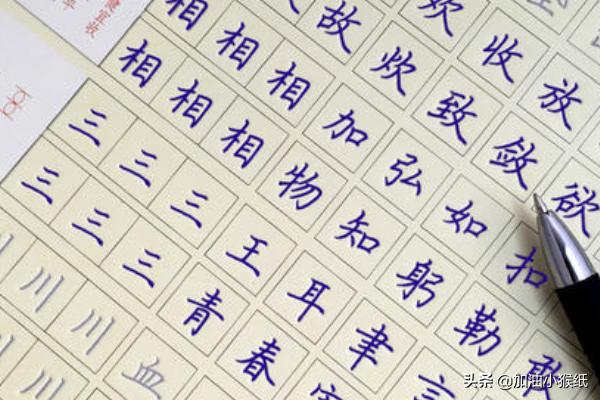 欢收放
故炊致敛欲
相相相加弘如扣
相相相物知躬勒敢
三三三王耳聿
三三三青春
川川血
川
头条 @加油小猴纸